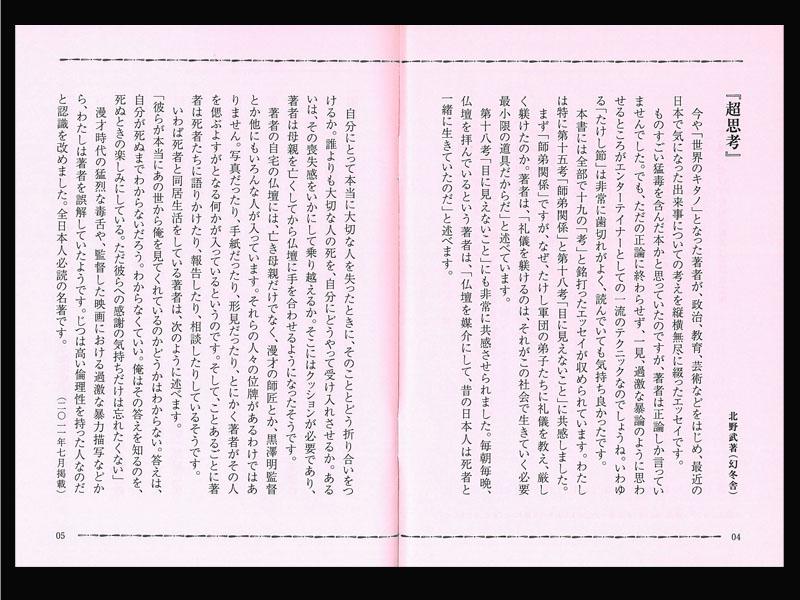 『超思考』
北野武著（幻冬舎）
今や「世界のキタノ」となった著者が、政治、教育、芸術などをはじめ、最近の
日本で気になった出来事についての考えを縦横無尽に綴ったエッセイです。
ものすごい猛毒を含んだ本かと思っていたのですが、著者は正論しか言ってい
ませんでした。でも、ただの正論に終わらせず、一見、過激な暴論のように思わ
せるところがエンターテイナーとしての一流のテクニックなのでしょうね。いわゆ
る「たけし節」は非常に歯切れがよく、読んでいても気持ち良かったです。
本書には全部で十九の「考」と銘打ったエッセイが収められています。わたし
は特に第十五考「師弟関係」と第十八考「目に見えないこと」に共感しました。
まず「師弟関係」ですが、なぜ、たけし軍団の弟子たちに礼儀を教え、厳し
く躾けたのか。著者は、「礼儀を躾けるのは、それがこの社会で生きていく必要
最小限の道具だからだ」と述べています。
第十八考「目に見えないこと」にも非常に共感させられました。毎朝毎晩、
仏壇を拝んでいるという著者は、「仏壇を媒介にして、昔の日本人は死者と
一緒に生きていたのだ」と述べます。
04
自分にとって本当に大切な人を失ったときに、そのこととどう折り合いをつ
けるか。誰よりも大切な人の死を、自分にどうやって受け入れさせるか。ある
いは、その喪失感をいかにして乗り越えるか。そこにはクッションが必要であり、
著者は母親を亡くしてから仏壇に手を合わせるようになったそうです。
著者の自宅の仏壇には、亡き母親だけでなく、漫才の師匠とか、黒澤明監督
とか他にもいろんな人が入っています。それらの人々の位牌があるわけではあ
りません。写真だったり、手紙だったり、形見だったり、とにかく著者がその人
を偲ぶよすがとなる何かが入っているというのです。そして、ことあるごとに著
者は死者たちに語りかけたり、報告したり、相談したりしているそうです。
いわば死者と同居生活をしている著者は、次のように述べます。
「彼らが本当にあの世から俺を見てくれているのかどうかはわからない。答えは、
自分が死ぬまでわからないだろう。わからなくていい。俺はその答えを知るのを、
死ぬときの楽しみにしている。ただ彼らへの感謝の気持ちだけは忘れたくない」
漫才時代の猛烈な毒舌や、監督した映画における過激な暴力描写などか
ら、わたしは著者を誤解していたようです。じつは高い倫理性を持った人なのだ
と認識を改めました。全日本人必読の名著です。
（二〇一一年七月掲載）
05